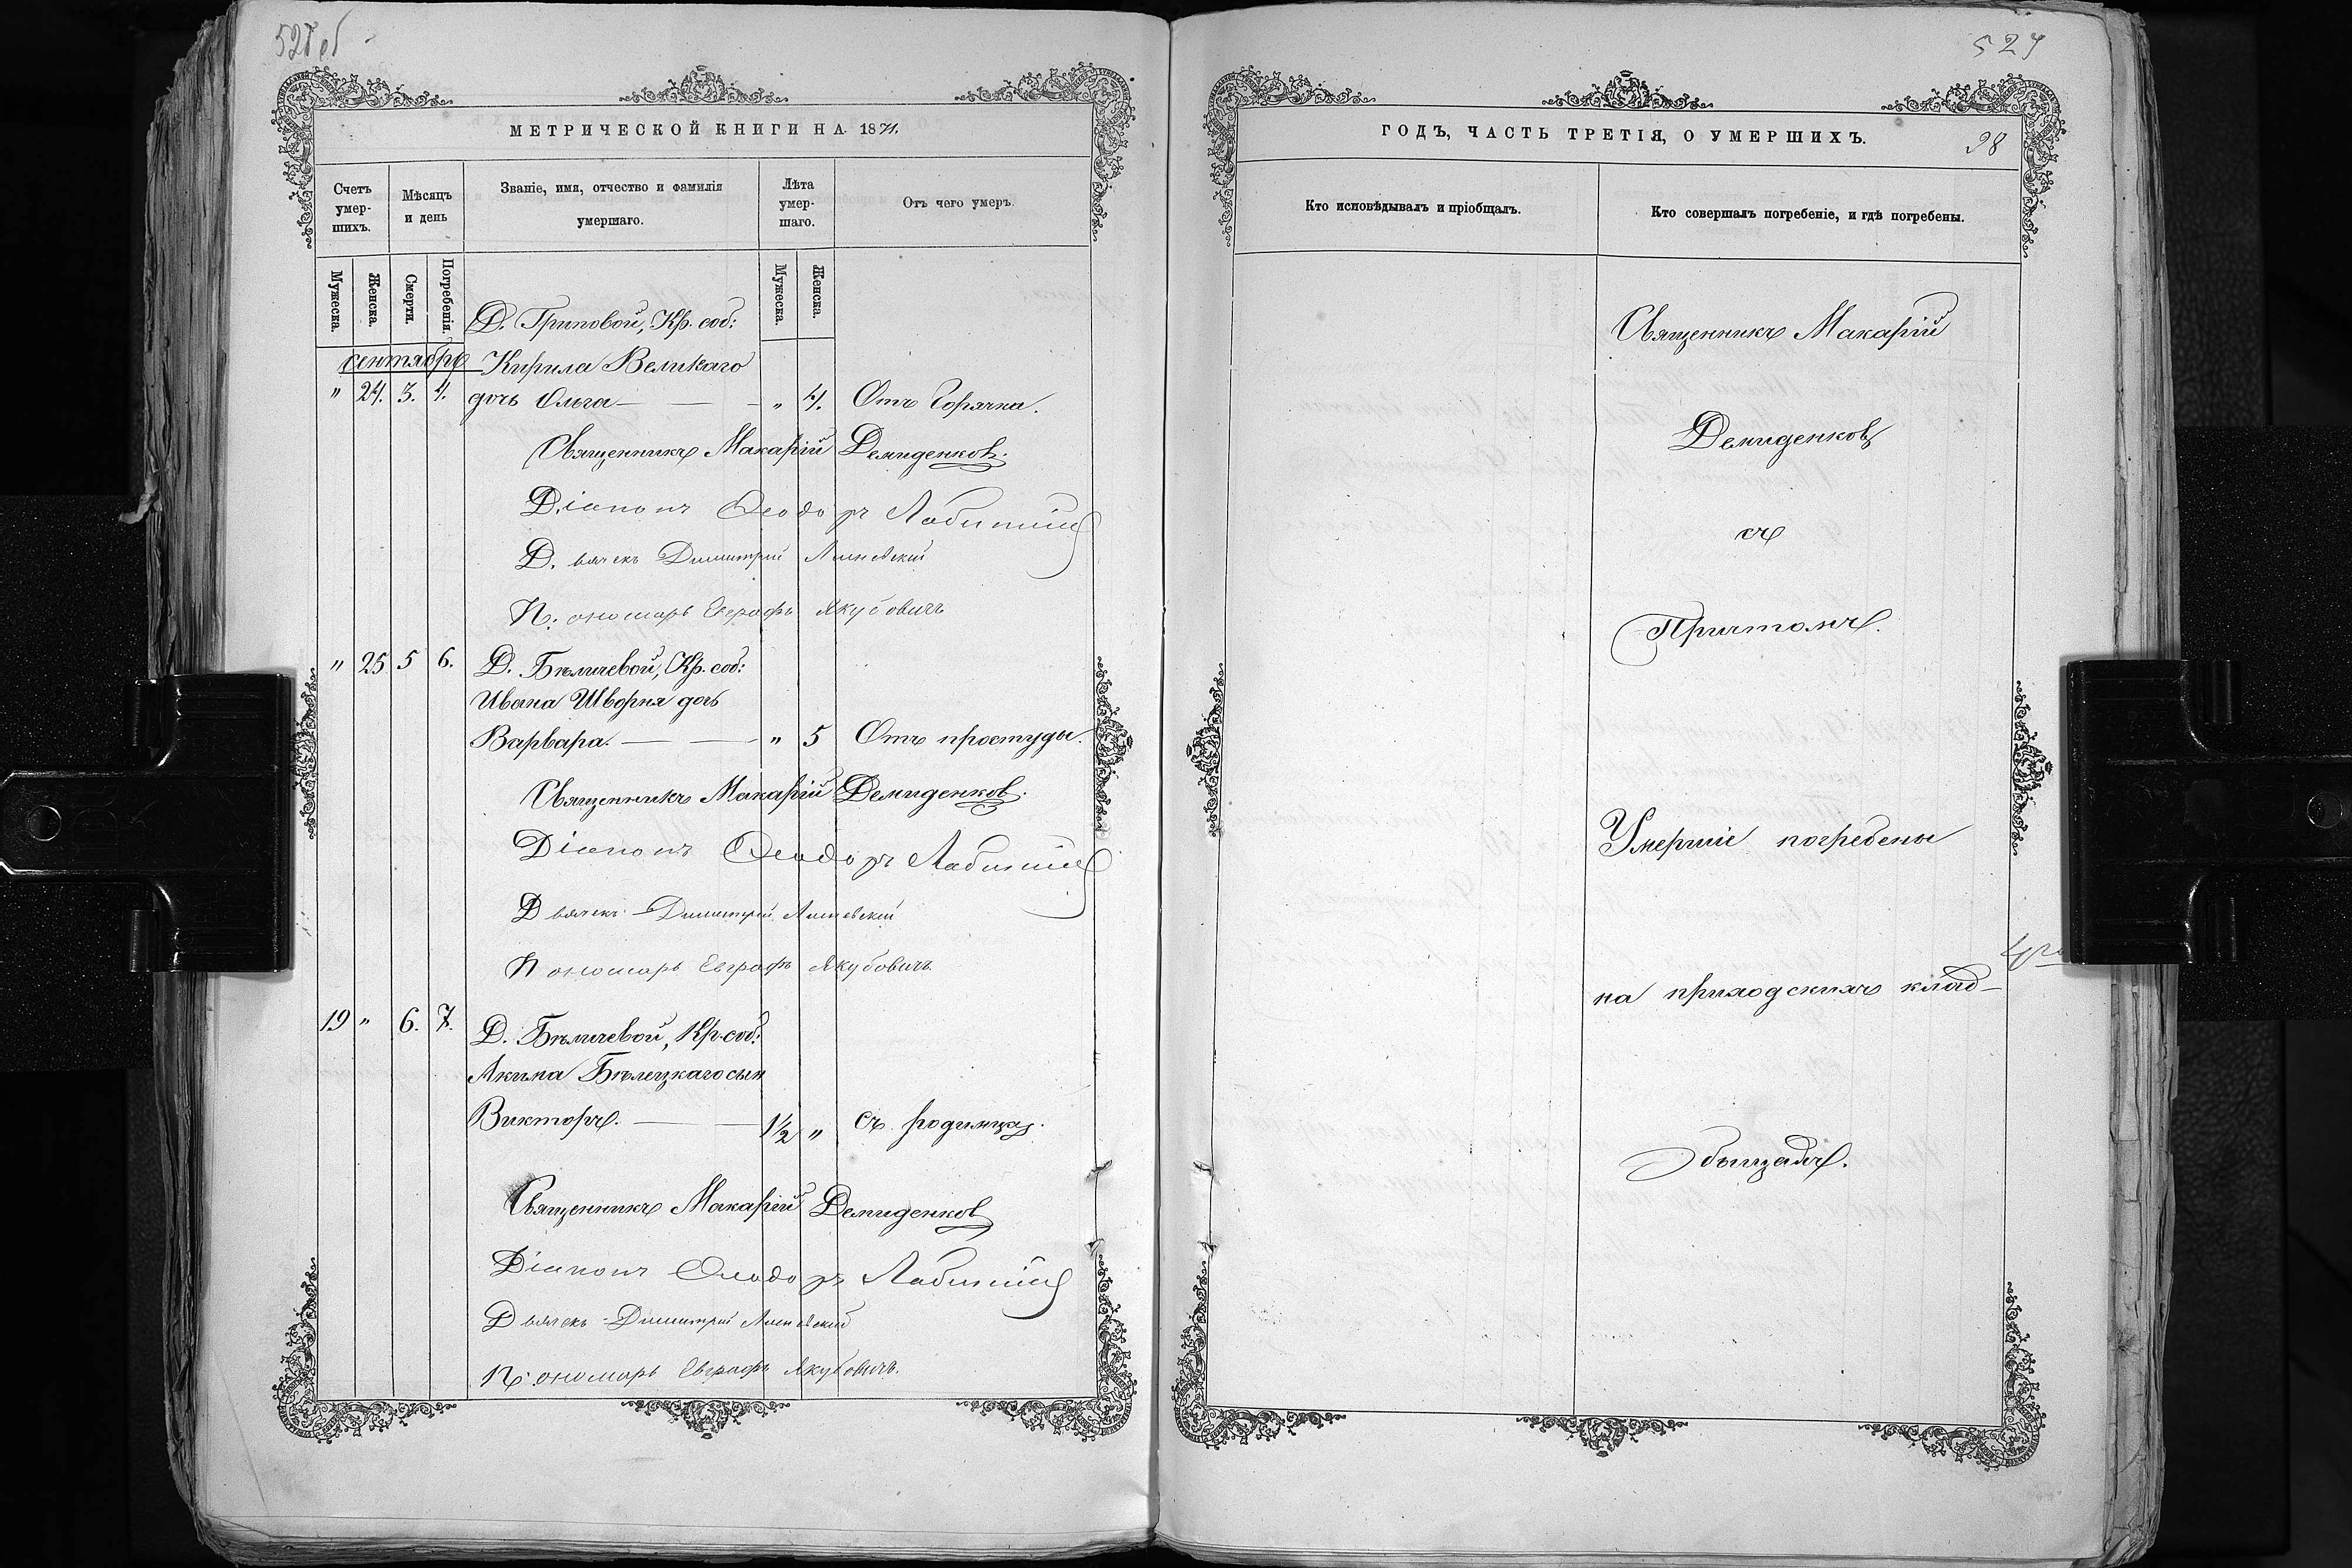 528об
МЕТРИЧЕСКОЙ КНИГИ НА 1871.
Счетъ умер-шихъ.
Мѣсяцъ и день
Званіе, имя, отчество и фамилія умершаго.
Лѣта умер-шаго.
Отъ чего умеръ.
Мужеска. Женска. Смерти. Погребенія. Мужеска. Женска.
Д. Гриповой, Кр. соб:
сентябрь Кирила Великаго
" 24. 3. 4. дочь Ольга — — " 4. Отъ Горячка.
Священникъ Макарій Демиденковъ.
Діаконъ Ѳеодоръ
Д. ьячекъ Димитрій
П: ономарь Евграфъ Якубовичъ
" 25 5 6. Д. Бѣличевой, Кр. соб:
Ивана Шворня дочь
Варвара. — — " 5 Отъ простуды.
Священникъ Макарій Демиденков.
Діаконъ Ѳеодоръ
Дьячекъ Димитрій
Пономарь Евграфъ Якубовичъ
19 " 6. 7. Д. Бѣличевой, Кр. соб:
Акима Бѣлецкаго сын
Викторъ. — — 1½ " Съ родимца.
Священникъ Макарій Демиденков
Діаконъ Ѳеодоръ
Дьячекъ Димитрій
П: ономарь Евграфъ Якубовичъ.
529
ГОДЪ, ЧАСТЬ ТРЕТІЯ, О УМЕРШИХЪ.
98
Кто исповѣдывалъ и пріобщалъ.
Кто совершалъ погребеніе, и гдѣ погребены.
Священникъ Макарій
Демиденковъ
съ
Притомъ.
Умершіе погребены
на приходскихъ клад-
бищахъ.